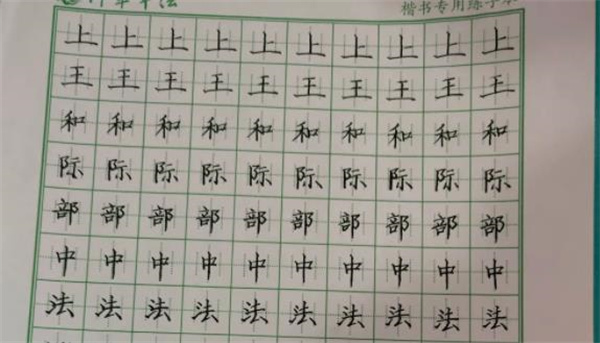 楷书专用练字本
上上上上上上上上上上
王王王王王王王王王王
和和和和和和和和和和
际际际际际际际际际际
部部部部部部部部部部
中中中中中中中中中中
法法法法法法法法法法